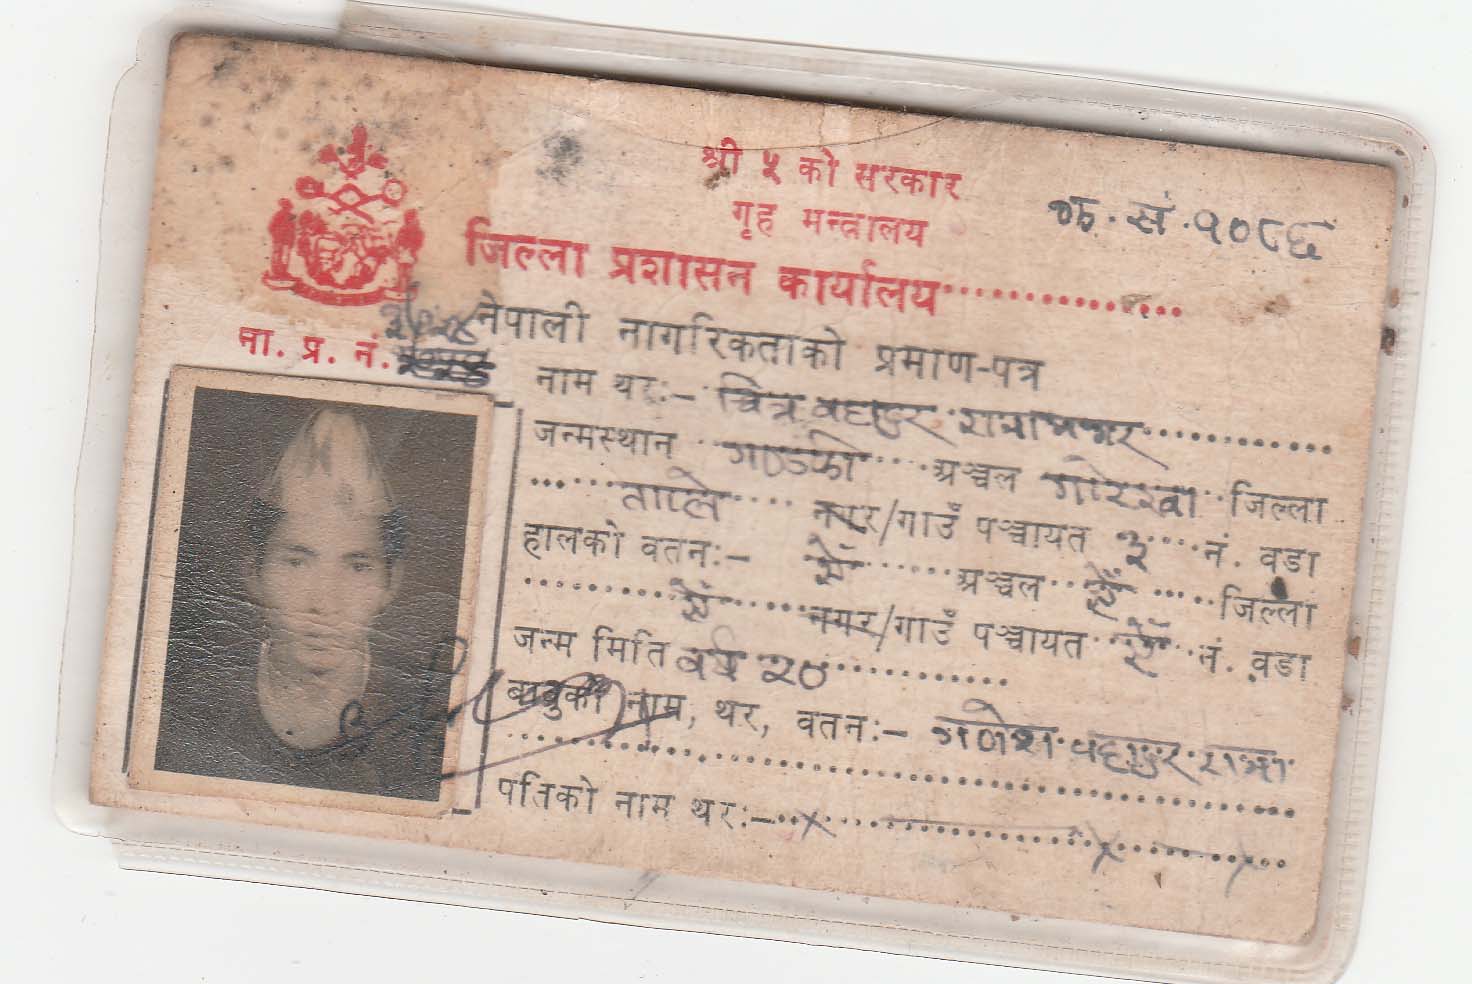 श्री ५ को सरकार
गृह मन्त्रालय
क्र. सं. १०८६
जिल्ला प्रशासन कार्यालय
ना. प्र. नं.
नेपाली नागरिकताको प्रमाण-पत्र
नाम थरः- चित्र बहादुर
जन्मस्थान गण्डकी अञ्चल गोरखा जिल्ला
ताप्ले नगर/गाउँ पञ्चायत ३ नं. वडा
हालको वतनः- ऐं अञ्चल ऐं जिल्ला
ऐं नगर/गाउँ पञ्चायत ऐं नं. वडा
जन्म मिति वर्ष २०
बाबुको नाम, थर, वतनः- गणेश बहादुर
पतिको नाम थरः-